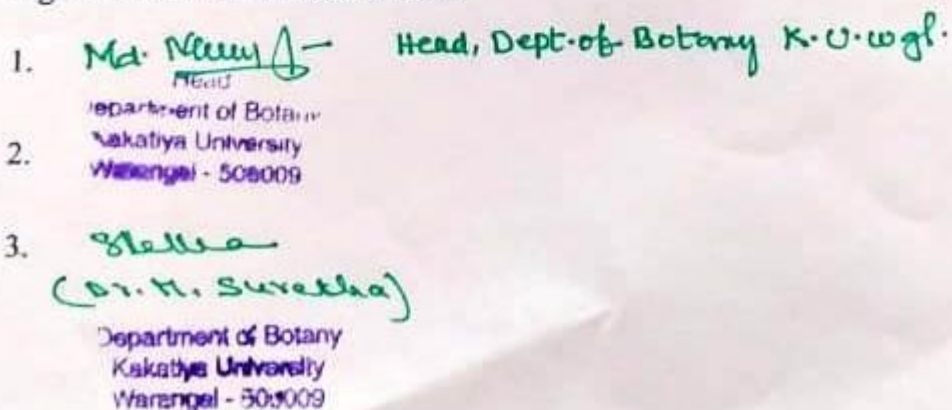 1. Md. Head, Dept. of Botany K.U. wgl.
Head
Department of Botany
2. Kakatiya University
Warangal - 506009
3.
(Dr. M. Surekha)
Department of Botany
Kakatiya University
Warangal - 506009